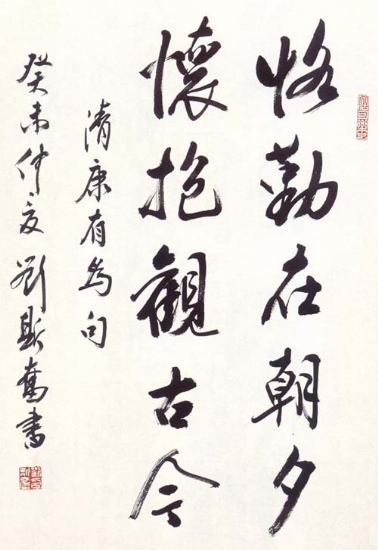 恪勤在朝夕
懷抱觀古今
清康有為句
癸未仲夏劉斯奮書